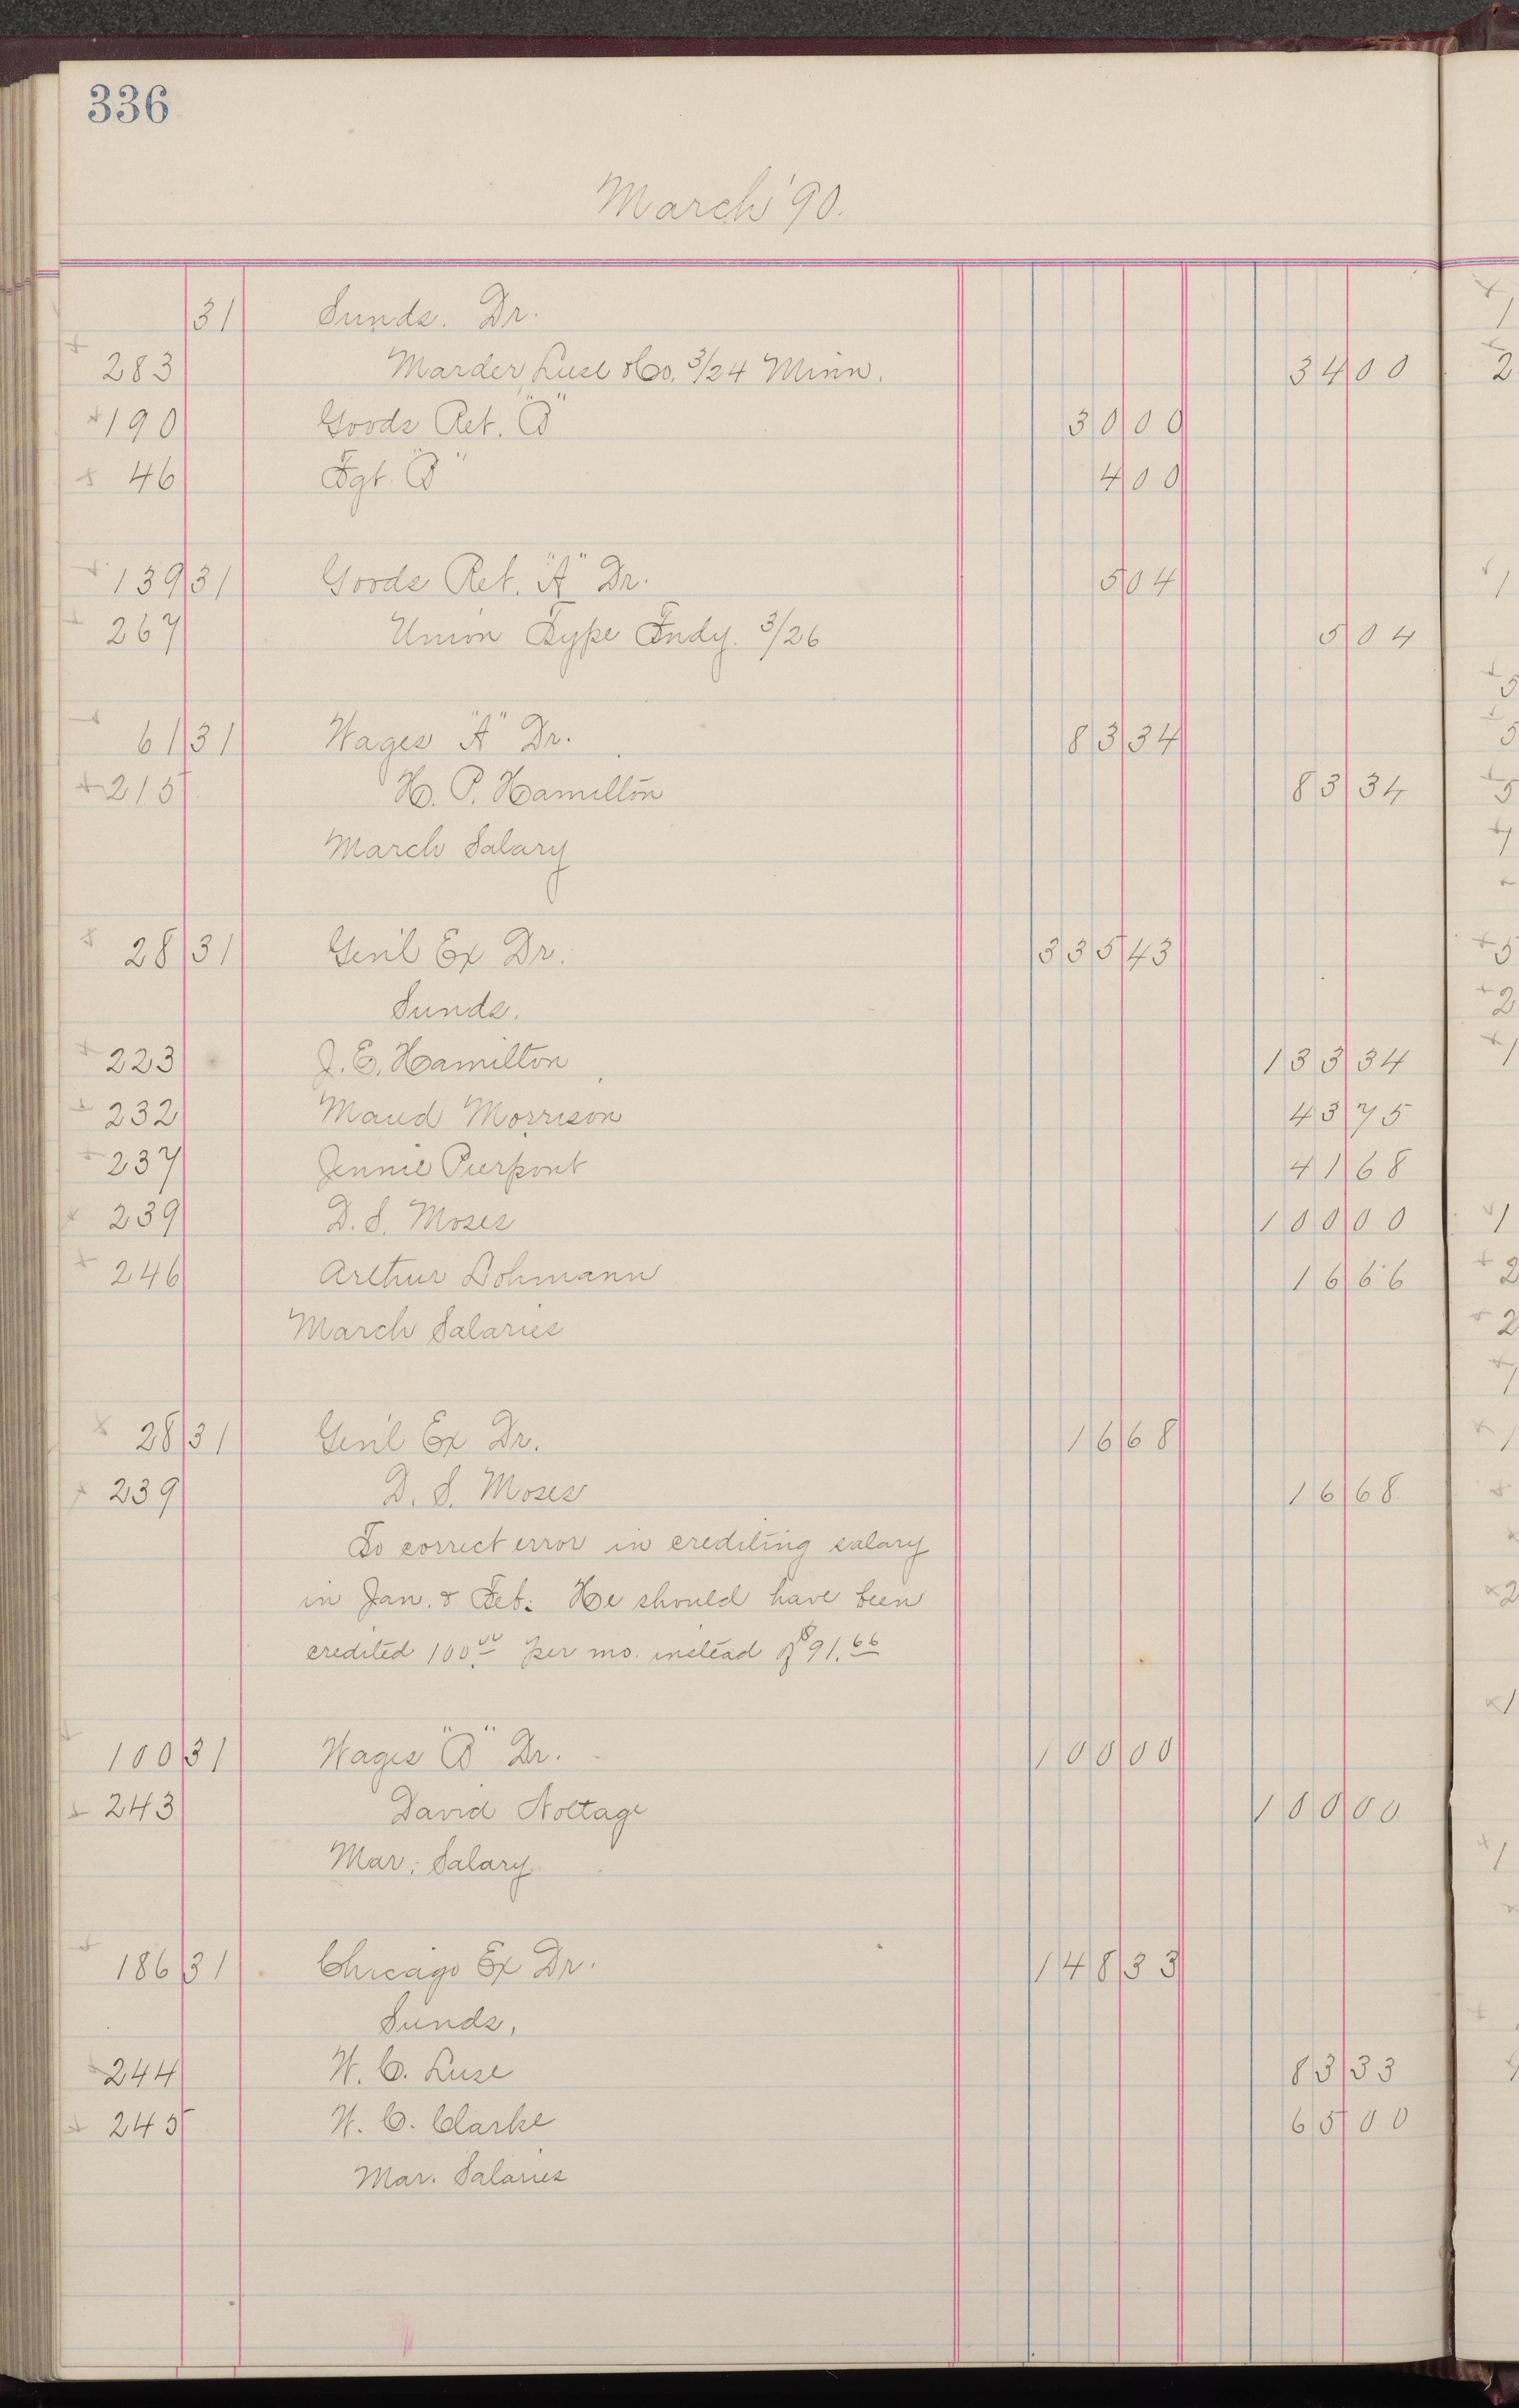 336
March '90.
31 Sunds. Dr.
283 Marder, Luse & Co. 3/24 Minn. 34 00
190 Goods Ret. "B" 30 00
46 Fgt. "B" 4 00
139 31 Goods Ret. "A" Dr. 5 04
267 Union Type Fndy. 3/26 5 04
61 31 Wages "A" Dr. 83 34
215 H. P. Hamilton 83 34
March Salary
28 31 Gen'l Ex Dr. 335 43
Sunds.
223 J. E. Hamilton 133 34
232 Maud Morrison 43 75
237 Jennie Pierpont 41 68
239 D. S. Moses 100 00
246 Arthur Dohmann 16 66
March Salaries
28 31 Gen'l Ex Dr. 16 68
239 D. S. Moses 16 68
To correct error in crediting salary
in Jan. & Feb. He should have been
credited 100.00 per mo. instead of $91.66
100 31 Wages "B" Dr. 100 00
243 David Nottage 100 00
Mar. Salary
186 31 Chicago Ex Dr. 148 33
Sunds,
244 W. C. Luse 83 33
245 W. C. Clarke 65 00
Mar. Salaries